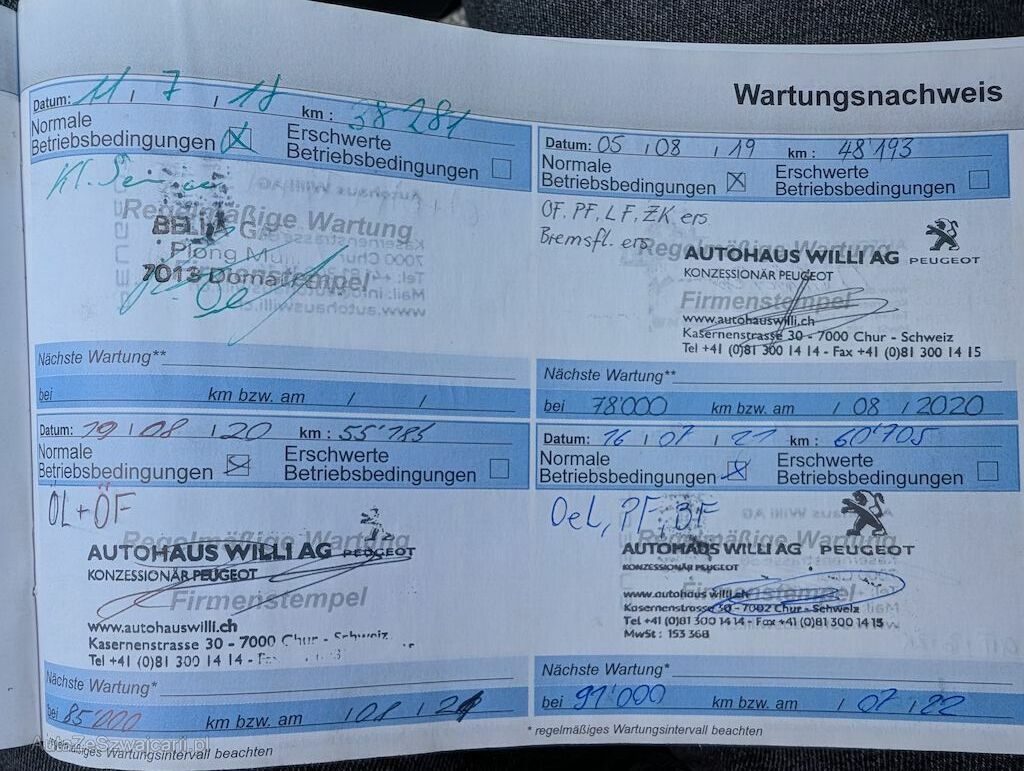 Wartungsnachweis
Datum: 11 / 7 / 18 km : 38'281
Normale Betriebsbedingungen
Erschwerte Betriebsbedingungen
Kl.
Regelmäßige Wartung
7013 Domat
Firmenstempel
Nächste Wartung**
bei km bzw. am / /
Datum: 05 / 08 / 19 km : 48'193
Normale Betriebsbedingungen
Erschwerte Betriebsbedingungen
ÖF, PF, LF, ZK ers
Bremsfl. ers
Regelmäßige Wartung
AUTOHAUS WILLI AG PEUGEOT
KONZESSIONÄR PEUGEOT
Firmenstempel
www.autohauswilli.ch
Kasernenstrasse 30 - 7000 Chur - Schweiz
Tel +41 (0)81 300 14 14 - Fax +41 (0)81 300 14 15
Nächste Wartung**
bei 78'000 km bzw. am / 08 / 2020
Datum: 19 / 08 / 20 km : 55'785
Normale Betriebsbedingungen
Erschwerte Betriebsbedingungen
ÖL + ÖF
Regelmäßige Wartung
AUTOHAUS WILLI AG PEUGEOT
KONZESSIONÄR PEUGEOT
Firmenstempel
www.autohauswilli.ch
Kasernenstrasse 30 - 7000 Chur - Schweiz
Tel +41 (0)81 300 14 14 -
Nächste Wartung*
bei 85'000 km bzw. am / 08 / 21
Datum: 16 / 07 / 21 km : 60'705
Normale Betriebsbedingungen
Erschwerte Betriebsbedingungen
Oel, PF, BF
Regelmäßige Wartung
AUTOHAUS WILLI AG PEUGEOT
KONZESSIONÄR PEUGEOT
Firmenstempel
www.autohauswilli.ch
Kasernenstrasse 30 - 7002 Chur - Schweiz
Tel +41 (0)81 300 14 14 - Fax +41 (0)81 300 14 15
MwSt : 153 368
Nächste Wartung*
bei 91'000 km bzw. am / 07 / 22
* regelmäßiges Wartungsintervall beachten
regelmäßiges Wartungsintervall beachten
AutaZeSzwajcarii.pl